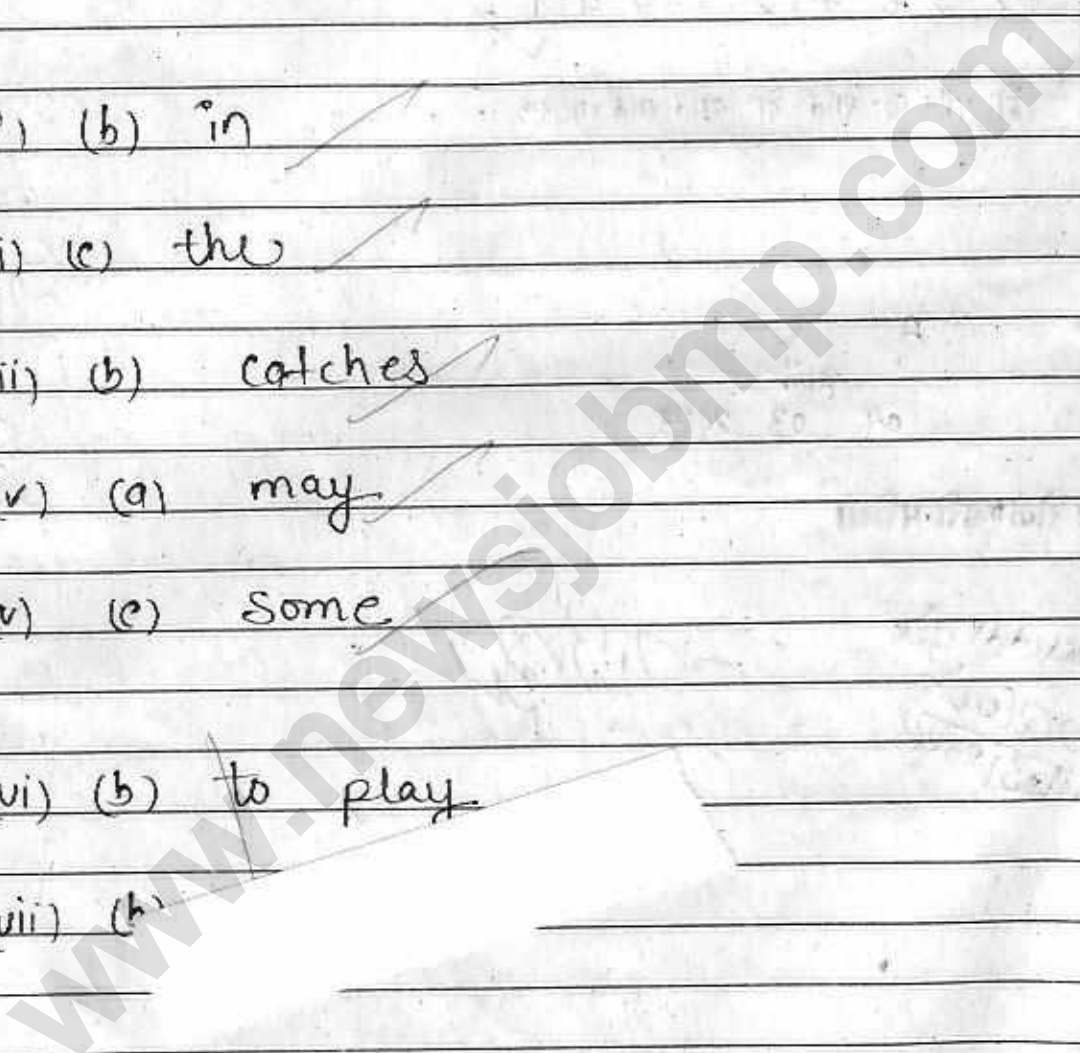 i) (b) in
i) (c) the
ii) (b) catches
v) (a) may
v) (c) some
vi) (b) to play
vii) (b)
www.newsjobmp.com